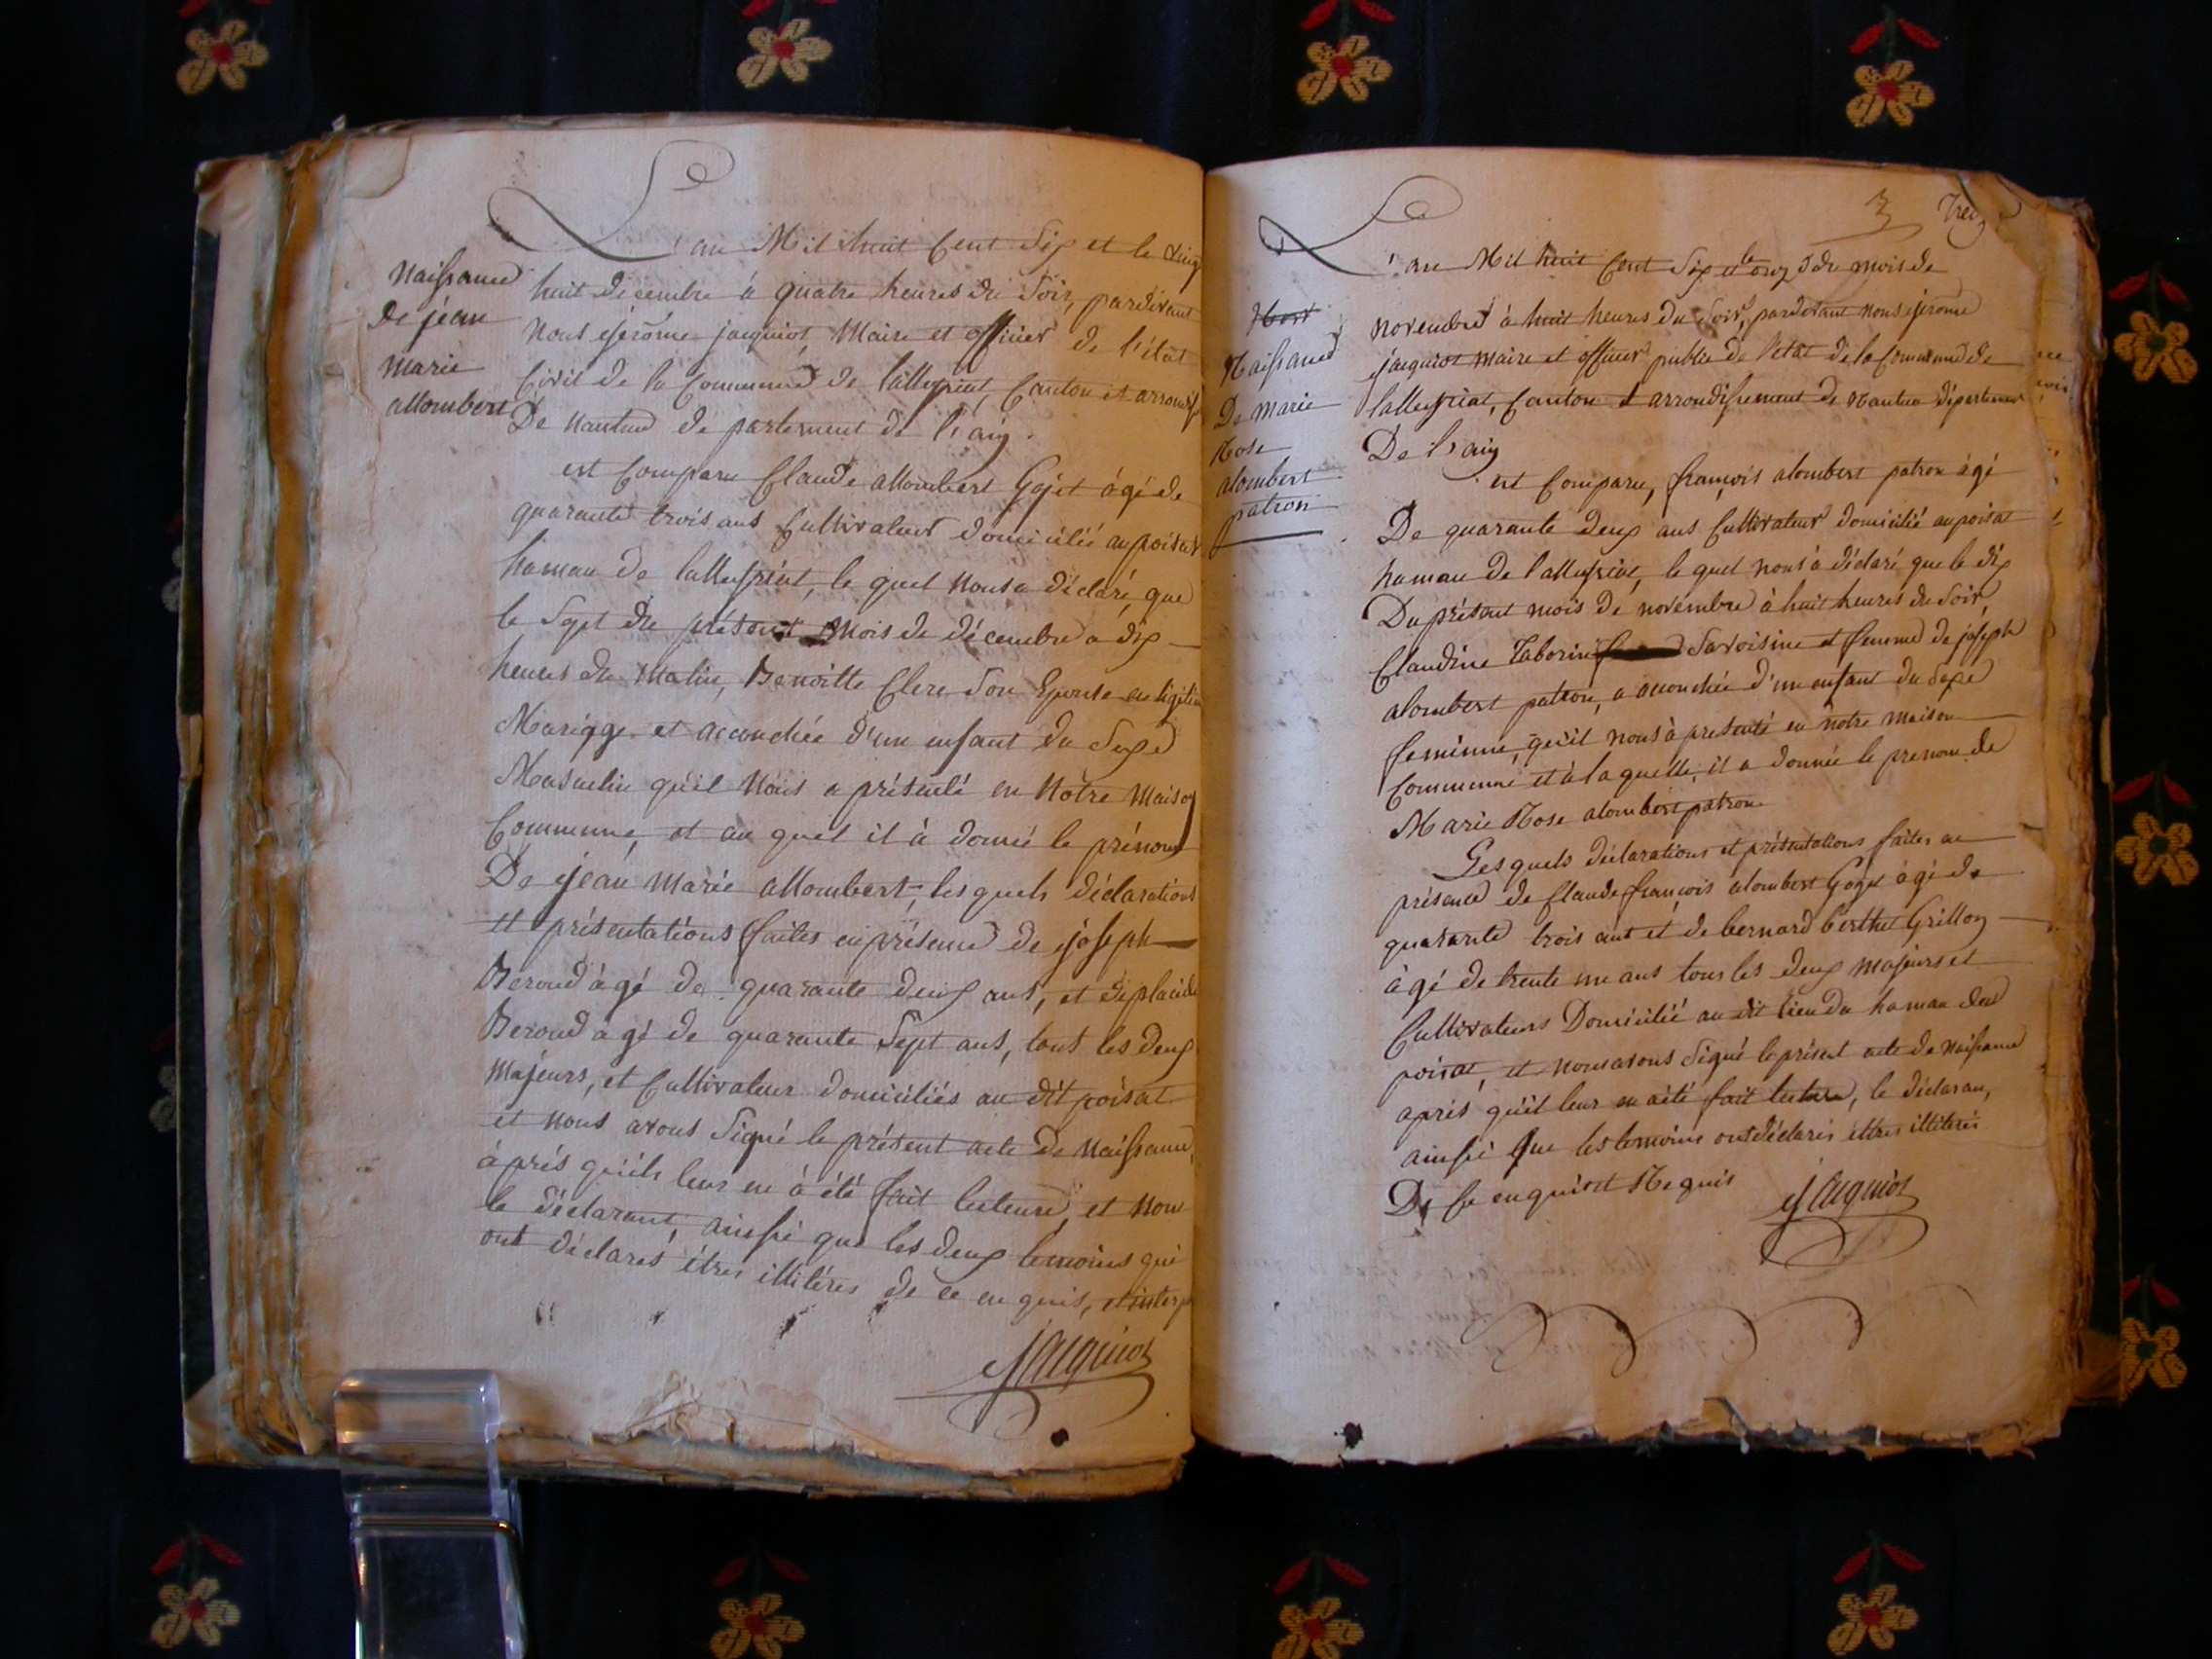 Naissance
De jéan
marie
allombert
L'an Mil huit Cent Dix et le vingt
huit décembre à quatre heures du Soir, pardevant
nous jérôme jacquiot, Maire et officier de l'état
Civil de la Commune de lalleyriat, Canton et arrondis
De nantua de partement de l'ain.
est Comparu Claude allombert Gojet âgé de
quarante trois ans Cultivateur domicilié au poizat
hamau de lalleyriat, le quel nous a déclaré, que
le Sept du présent mois de décembre a dix
heures du Matin, Benoitte Clerc Son Epouse en légitime
Mariage et accouchée d'un enfant du Sexe
Masculin qu'il Nous a présenté en Nôtre Maison
Commune, et au quel il à donné le prénom
De jéan Marie allombert, les quels déclarations
et présentations faites en présence de joseph
Beroud âgé de quarante deux ans, et de placide
Beroud agé de quarante Sept ans, tout les deux
Majeurs, et Cultivateur domiciliés au dit poisat
et nous avons Signé le présent acte de Naissance,
àprés qu'ils leur en à été fait lecteure, et non
le déclarant, ainssi que les deux temoins qui
ont déclarés étres illitéres de ce en quis,
Jacquiot
3
L'an Mil huit Cent Dix et le onze du mois de
Mort
Naissance
De Marie
Rose
alombert
patron
novembre à huit heures du Soir, pardevant nous jérome
jacquiot maire et officier public de l'etat de la Commune de
lalleyriat, Canton et arrondissement de Nantua département
De l'ain
est Comparu, françois alombert patron âgé
De quarante deux ans Cultivateur domicilié au poisat
hamau de lalleyriat, le quel nous à déclaré que le dix
Du présent mois de novembre à huit heures du Soir,
Claudine Taborin Savoisine et femme de joseph
alombert patron, a accouchée d'un enfant du Sexe
feminine, qu'il nous à presenté en nôtre maison
Commune et à la quelle il a donnée le prenom de
Marie Rose alombert patron
Les quels déclarations et présentations faites en
présence de Claude françois alombert Goget âgé de
quarante trois ans et de bernard berthet Grillon
âgé de trente un ans tous les deux majeurs et
Cultivateurs Domicilié au dit lieu du hamau de
poisat, et nous avons Signé le présent acte de Naissance
aprés qu'il leur en a été fait lecture, le déclarant,
ainssi que les temoins ont déclarés êttres illitérés
De Ce enquis et Requis
Jacquiot